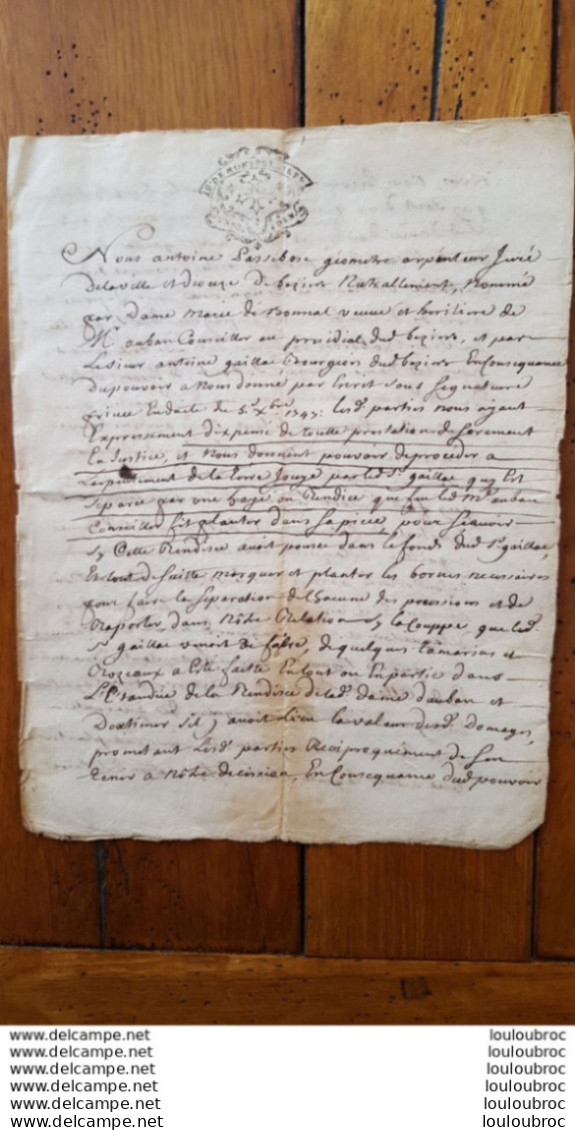 Nous antoine Lassebose géometre arpenteur Juré
de la ville et dioceze de beziers Nattallement, Nommé
par Dame Marie de Bonnal veuve et heritiere de
Mr auban Conseiller au presidial dud beziers, et par
Le sieur antoine gaillac Bourgeois dud beziers En Consequance
Du pouvoir a Nous donné par Ecrit sous signature
privee En datte du 5e Xbre 1747. lesd parties nous ayant
Expressement dispensé de toutte prestation de serement
En Justice, et Nous donnent pouvoir de proceder a
Larpentement de la terre Jouye par led Sr gaillac quy Est
separée par une haye ou Rendisse que feu led Mr auban
Conseiller fit planter dans sa piece, pour scavoir
sy Cette Rendisse avoit poussé dans le fonds dud Sr gaillac,
Et tout de suitte marquer et planter les bornes necessaires
pour faire la separation de Chacune des possessions et de
Raporter, dans Notre Relation sy la Couppe, que led
Sr gaillac vient de faire, de quelques tamarins et
Rozeaux a Esté faitte En tout ou En partie dans
L'Etandue de la Rendisse de lad dame dauban et
D'estimer sil y avoit Lieu la valeur desd domages,
prometant Lesd parties Reciproquement de sen
tenir a Notre decission, En Consequance dud pouvoir
www.delcampe.net louloubroc
www.delcampe.net louloubroc
www.delcampe.net louloubroc
www.delcampe.net louloubroc
www.delcampe.net louloubroc
www.delcampe.net louloubroc